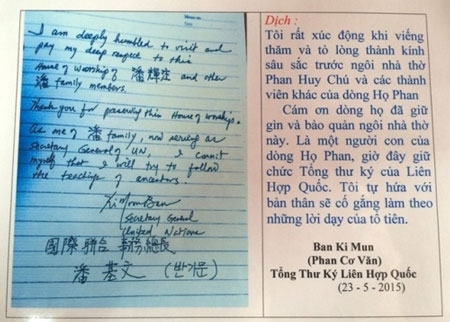 I am deeply humbled to visit and
pay my deep respect to this
House of Worship of 潘輝注 and other
潘 family members.
Thank you for preserving this House of worship.
As one of 潘 family, now serving as
Secretary General of UN, I commit
myself that I will try to follow
the teachings of ancestors.
Ki Moon Ban
Secretary General
United Nations
國際聯合 事務總長
潘 基文 (반기문)
Dịch :
Tôi rất xúc động khi viếng
thăm và tỏ lòng thành kính
sâu sắc trước ngôi nhà thờ
Phan Huy Chú và các thành
viên khác của dòng Họ Phan
Cám ơn dòng họ đã giữ
gìn và bảo quản ngôi nhà thờ
này. Là một người con của
dòng Họ Phan, giờ đây giữ
chức Tổng thư ký của Liên
Hợp Quốc. Tôi tự hứa với
bản thân sẽ cố gắng làm theo
những lời dạy của tổ tiên.
Ban Ki Mun
(Phan Cơ Văn)
Tổng Thư Ký Liên Hợp Quốc
(23 - 5 - 2015)